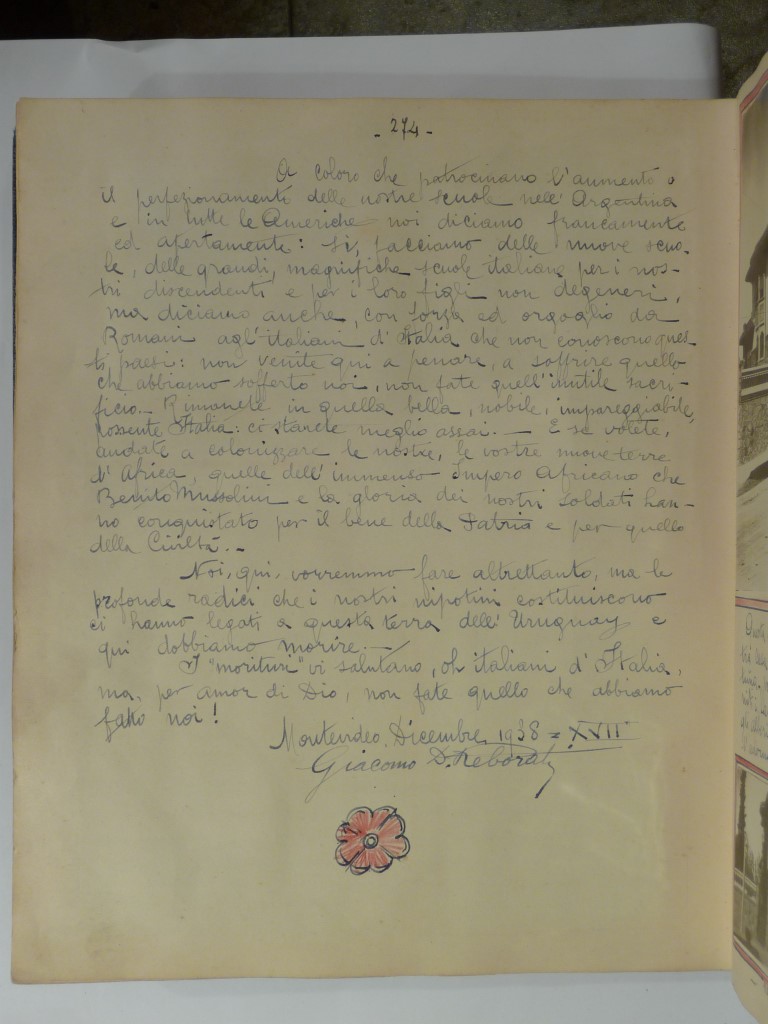 - 274 -
A coloro che patrocinano l'aumento o
il perfezionamento delle nostre scuole nell'Argentina
e in tutte le Americhe noi diciamo francamente
ed apertamente: sì, facciamo delle nuove scuo-
le, delle grandi, magnifiche scuole italiane per i nos-
tri discendenti e per i loro figli non degeneri,
ma diciamo anche, con forza ed orgoglio da
Romani agl'italiani d'Italia che non conoscono ques-
ti paesi: non venite qui a penare, a soffrire quello
che abbiamo sofferto noi, non fate quell'inutile sacri-
ficio.- Rimanete in quella bella, nobile, impareggiabile,
possente Italia: ci starete meglio assai.- E se volete,
andate a colonizzare le nostre, le vostre nuove terre
d'Africa, quelle dell'immenso Impero Africano che
Benito Mussolini e la gloria dei nostri soldati han-
no conquistato per il bene della Patria e per quello
della Civiltà.-
Noi, qui, vorremmo fare altrettanto, ma le
profonde radici che i nostri nipotini costituiscono
ci hanno legati a questa terra dell'Uruguay e
qui dobbiamo morire.-
I "morituri" vi salutano, oh italiani d'Italia,
ma, per amor di Dio, non fate quello che abbiamo
fatto noi!
Montevideo, Dicembre 1938 = XVII°
Giacomo D. Reborati